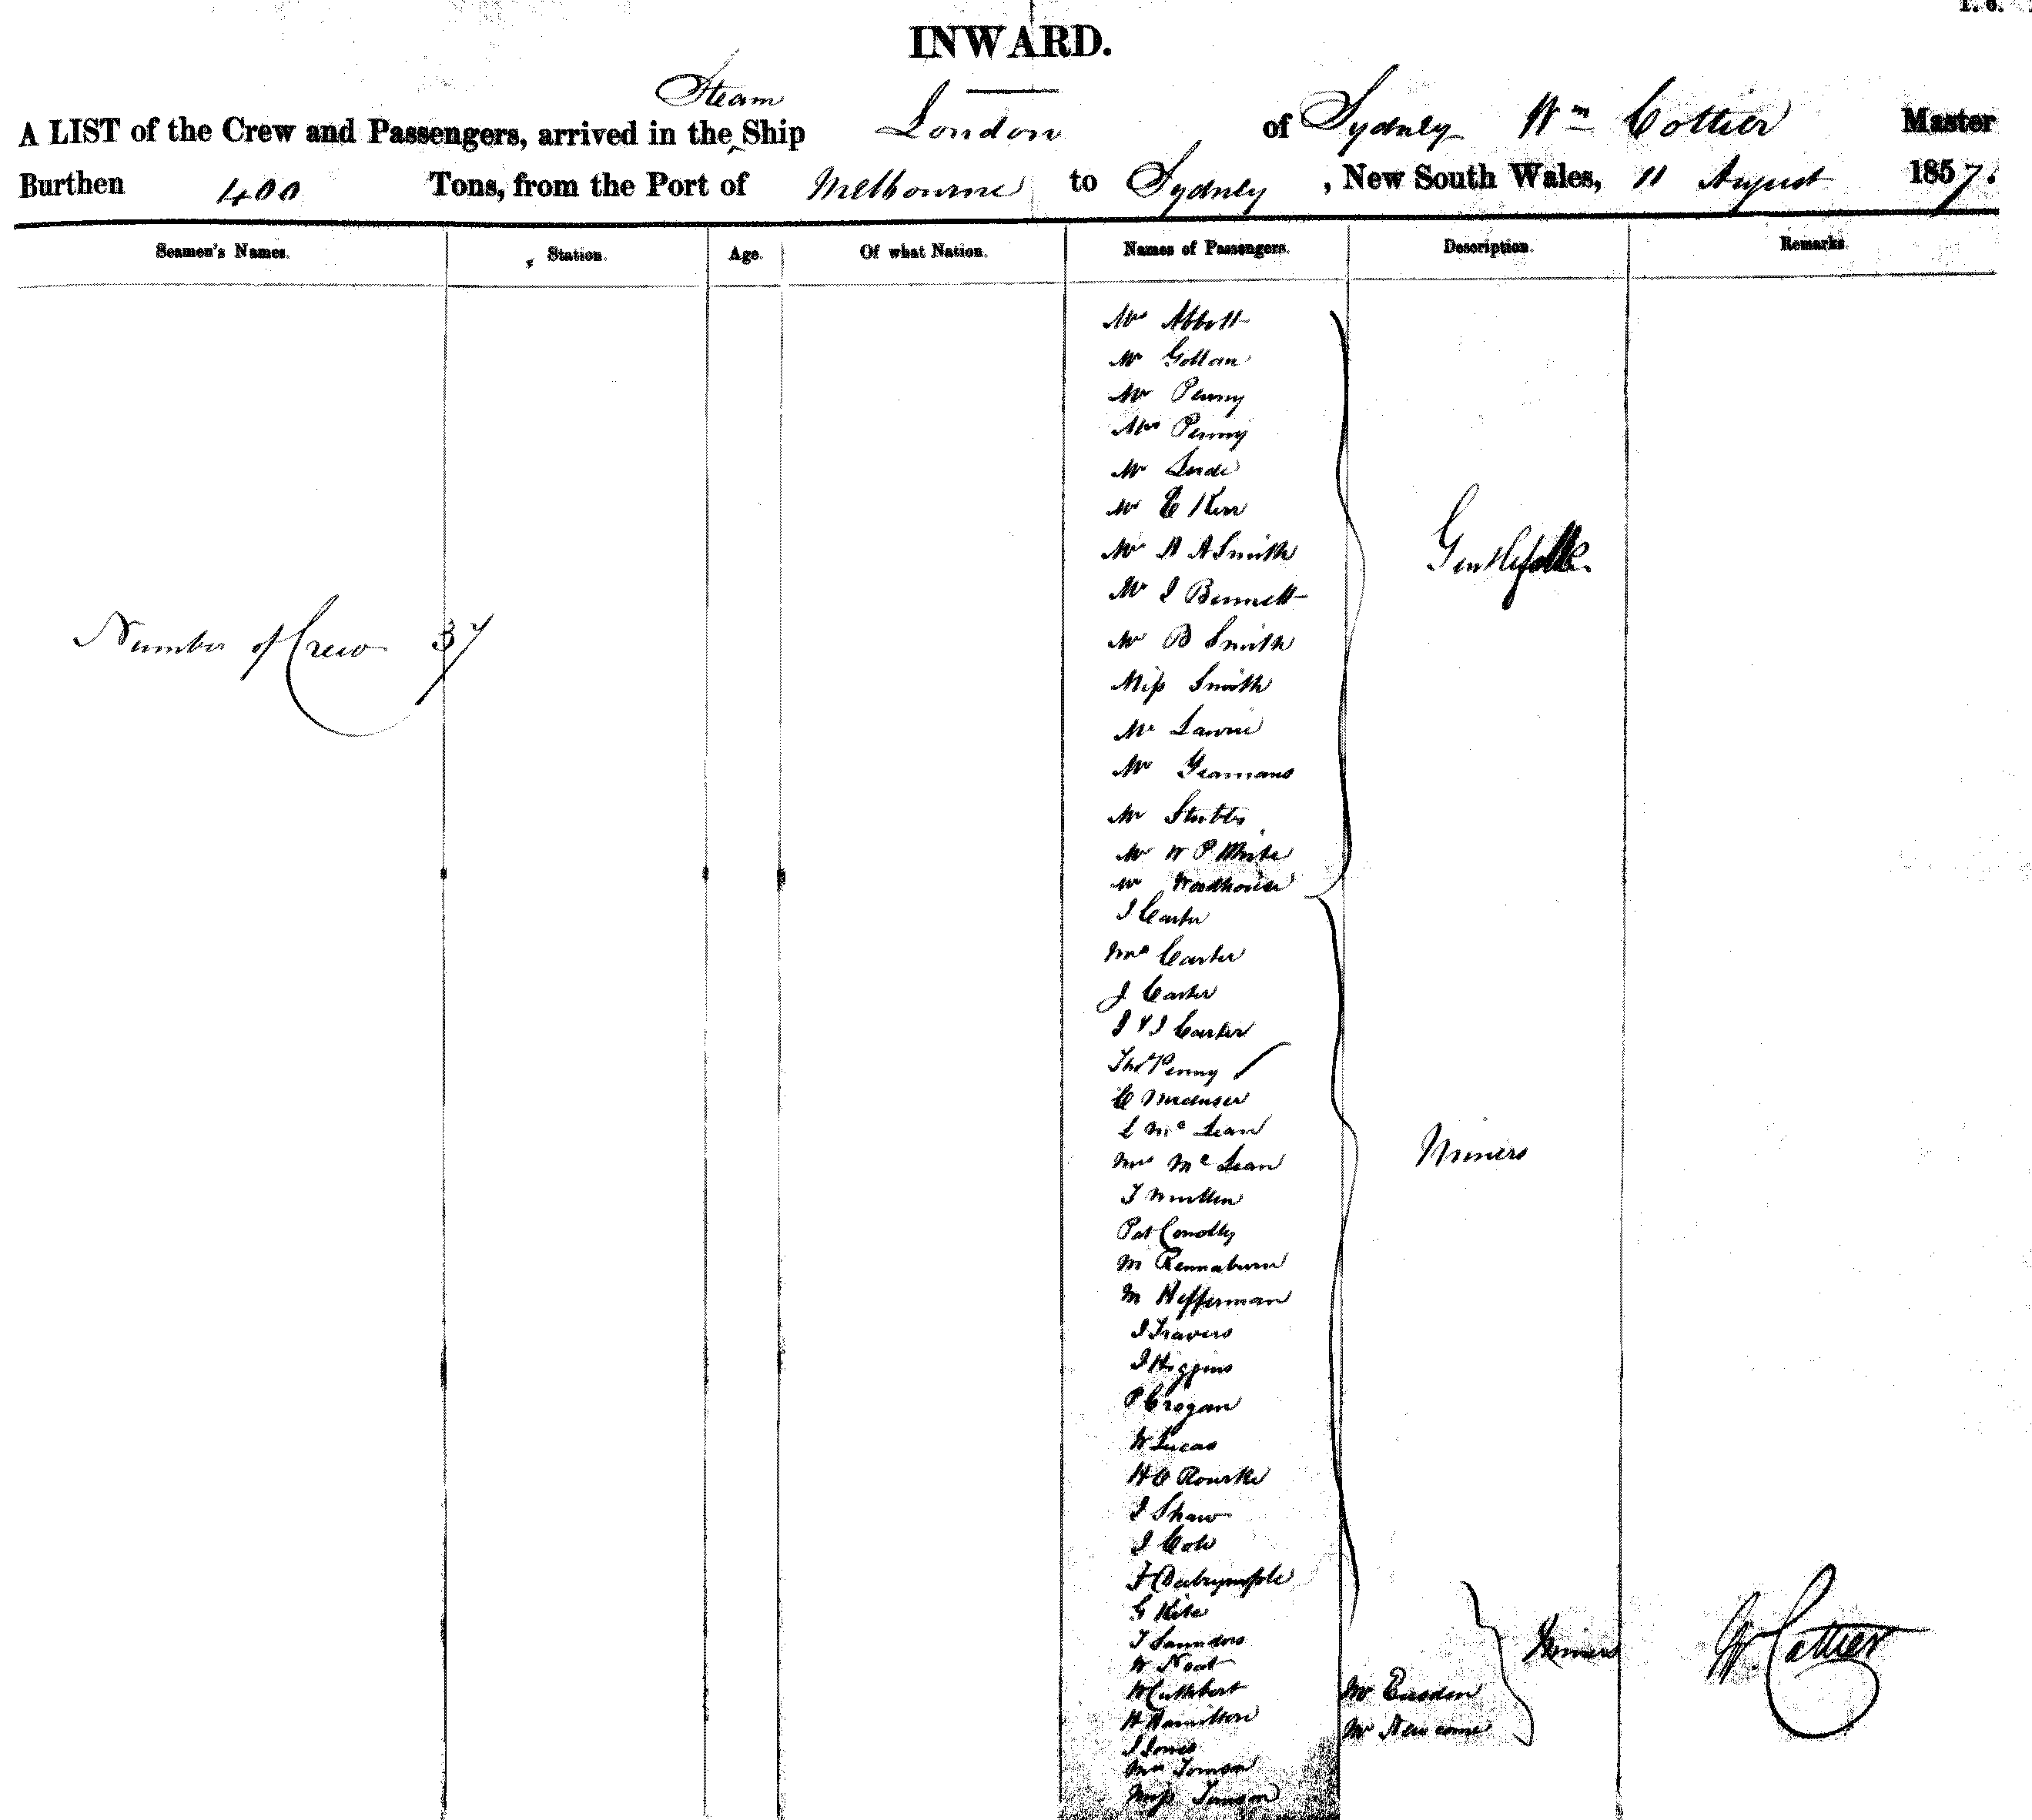 INWARD.
Steam
A LIST of the Crew and Passengers, arrived in the Ship London of Sydney Wm Cottier Master
Burthen 400 Tons, from the Port of Melbourne to Sydney, New South Wales, 11 August 1857.
Seamen's Names. Station. Age. Of what Nation. Names of Passengers. Description. Remarks
Mr Abbott
Mr Gollan
Mr Penny
Mrs Penny
Mr
Mr C Kerr
Mr A A Smith
Gentlefolks.
Mr I Bennett
Number of Crew 37
Mr B Smith
Miss Smith
Mr Lawrie
Mr Yeamans
Mr Stubbs
Mr W P White
Mr Woodhouse
J Carter
Mrs Carter
J Carter
J & J Carter
Thos Penny
C
C Mc Lean
Miners
Mrs Mc Lean
T Mullen
Pat Conolly
M Rennaburn
M Hefferman
J Travers
J Higgins
P Crogan
W Lucas
H O Rourke
J Shaw
J Cole
F Dalrymple
G Kite
T Saunders
Miners
W. Cottier
W Noat
W Cuthbert Mr Easden
H Hamilton Mr Newcome
J Jones
Mrs
Miss